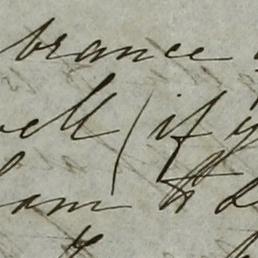 brance
ell (if y
am to